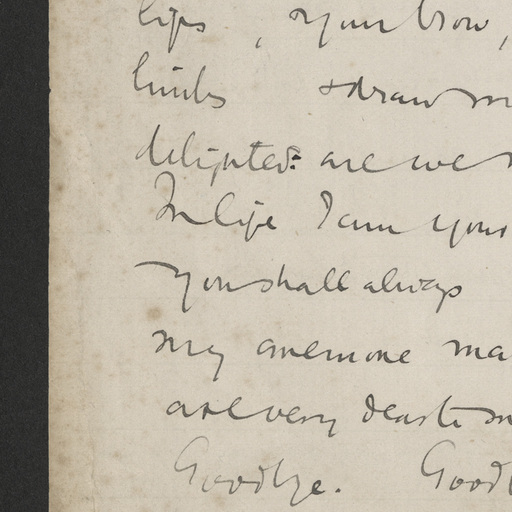 lips, your brow,
limbs & draw m
delighted: are we
In life I am yours
you shall always
my anemone ma
are very dear to m
Goodbye. Goodb